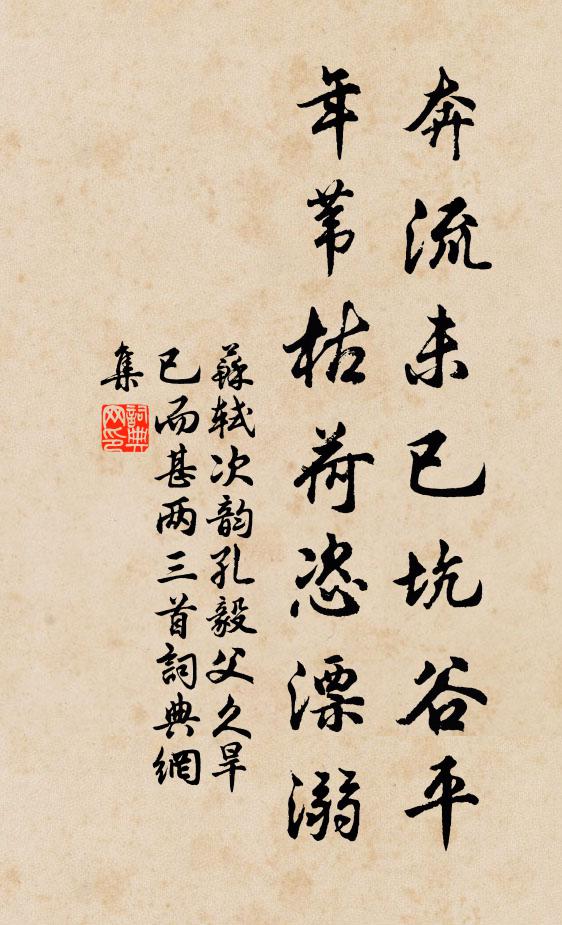 奔流未已坑谷平
年苇枯荷恣漂溺
蘇轼次韵孔毅父久旱
已而甚两三首詞典網
集
詞典
网印